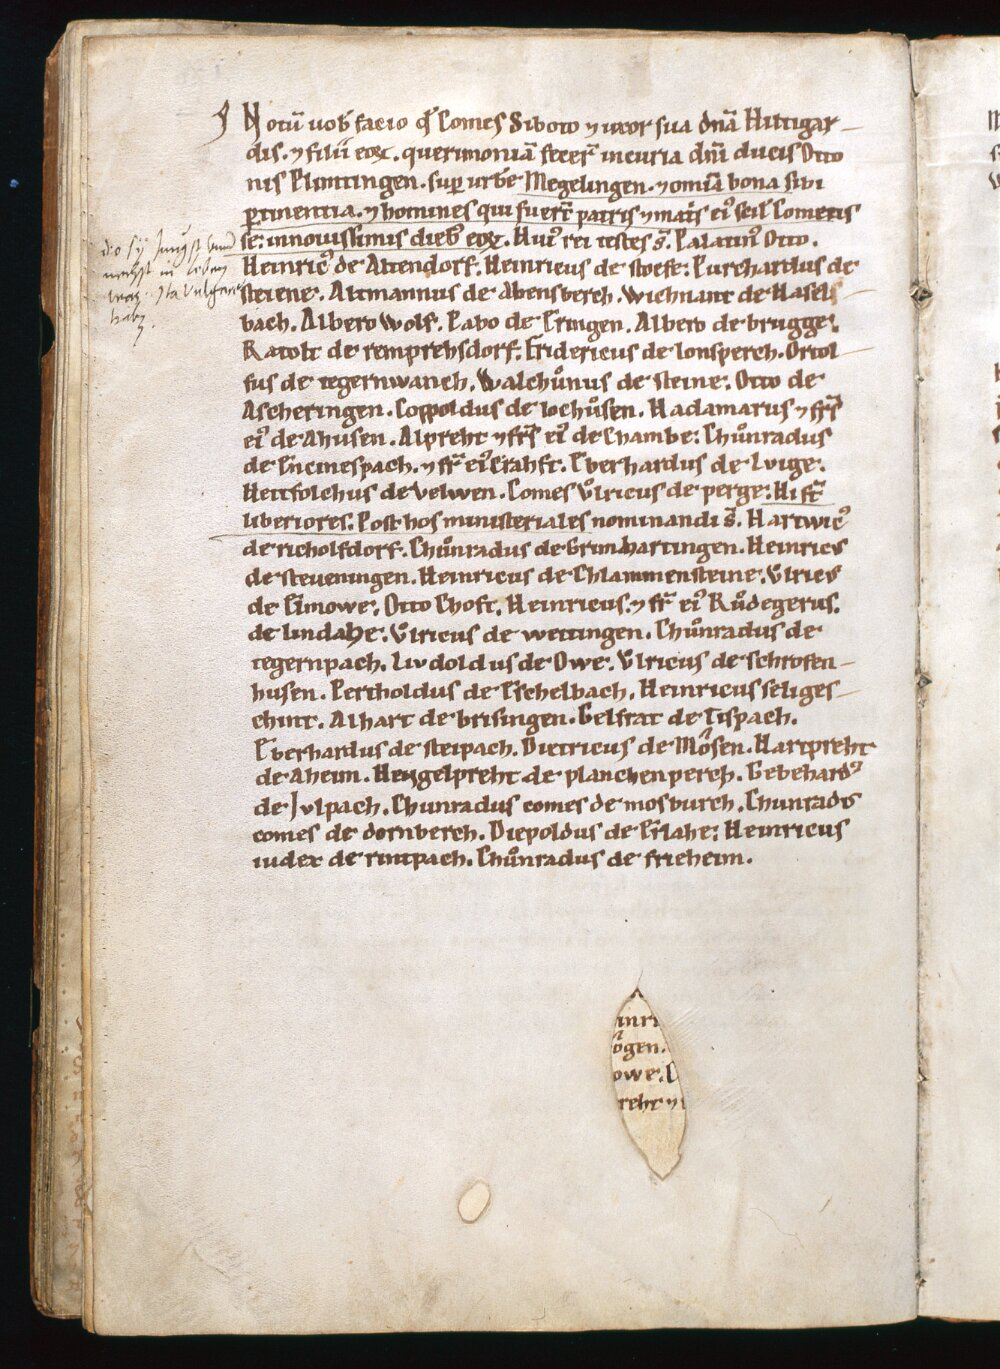 Notū uob᷒ facio qd̕ Comes Siboto ⁊ uxor sua dn̄a Hiltigar-
dis. ⁊ filii eoꝝ. querimoniā fecer̄ in curia dn̄i ducis Otto
nis Plintingen. sup̱ urbe Megelingen. ⁊ om̄ia bona sibi
ꝑtinentia. ⁊ homines qui fuer̄t patris ⁊ mat̄s ei᷒ scil̄ Cometis
se: in nouissimis dieb᷒ eoꝝ. Hui᷒ rei testes s̄. Palatin᷒ Otto.
Heinric᷒ de Altendorf. Heinricus de stoefe: Purchardus de
steiene. Altmannus de Abensberch. Wichnant de Hasels-
bach. Albero Wolf. Pabo de Eringen. Albero de brugge.
Ratolt de remprehsdorf. Fridericus de lonsperch. Ortol-
fus de tegernwanch. Walchůnus de steine. Otto de
Ascheringen. Coppoldus de lochůsen. Hadamarus ⁊ fr̄s
ei᷒ de Ahusen. Alpreht ⁊ fr̄s ei᷒ de Chambe: Chůnradus
de Encinespach. ⁊ fr̄ ei᷒ Crahft. Eberhardus de luige.
Hettfolchus de Velwen. Comes Vͦlricus de perge: Hi st̄
liberiores: Post hos ministeriales nominandi s̄. Hartwic᷒
de richolfdorf. Chůnradus de Grimhartingen. Heinricv
de steueningen. Heinricus de Chlammensteine: Vlricv
de Eimowe. Otto Choft. Heinricus. ⁊ fr̄ ei᷒ Růdegerus.
de lindahe: Vͦlricus de wettingen. Chůnradus de
tegernpach. Livdoldus de Owe. Vlricus de schrofen-
husen. Pertholdus de Eschelbach. Heinricus seliges-
chint. Alhart de brisingen. Gelfrat de Tispach.
Eberhardus de steipach. Dietricus de Môsen. Hartpreht
de Aheim. Hengelpreht de planchenperch. Gebehard᷒
de Julpach. Chunradus comes de mosburch. Chunrads
comes de dornberch. Diepoldus de Erlahe: Heinricus
iudex de rintpach. Chůnradus de frieheim.
do sy Jungst
in leben
haben.
inri
ogen.
owe. C
reht ⁊